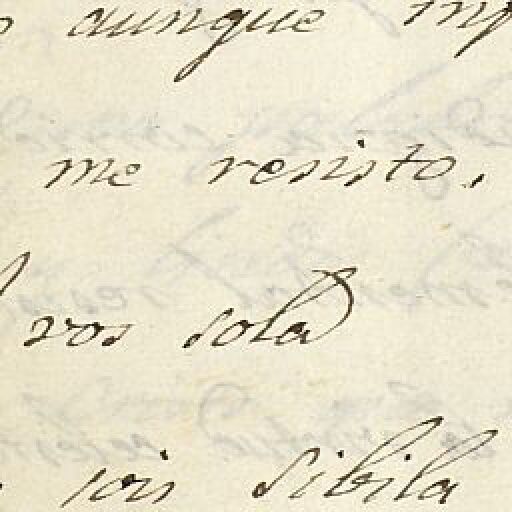 aunque
me resisto,
vos sola
sois sibila